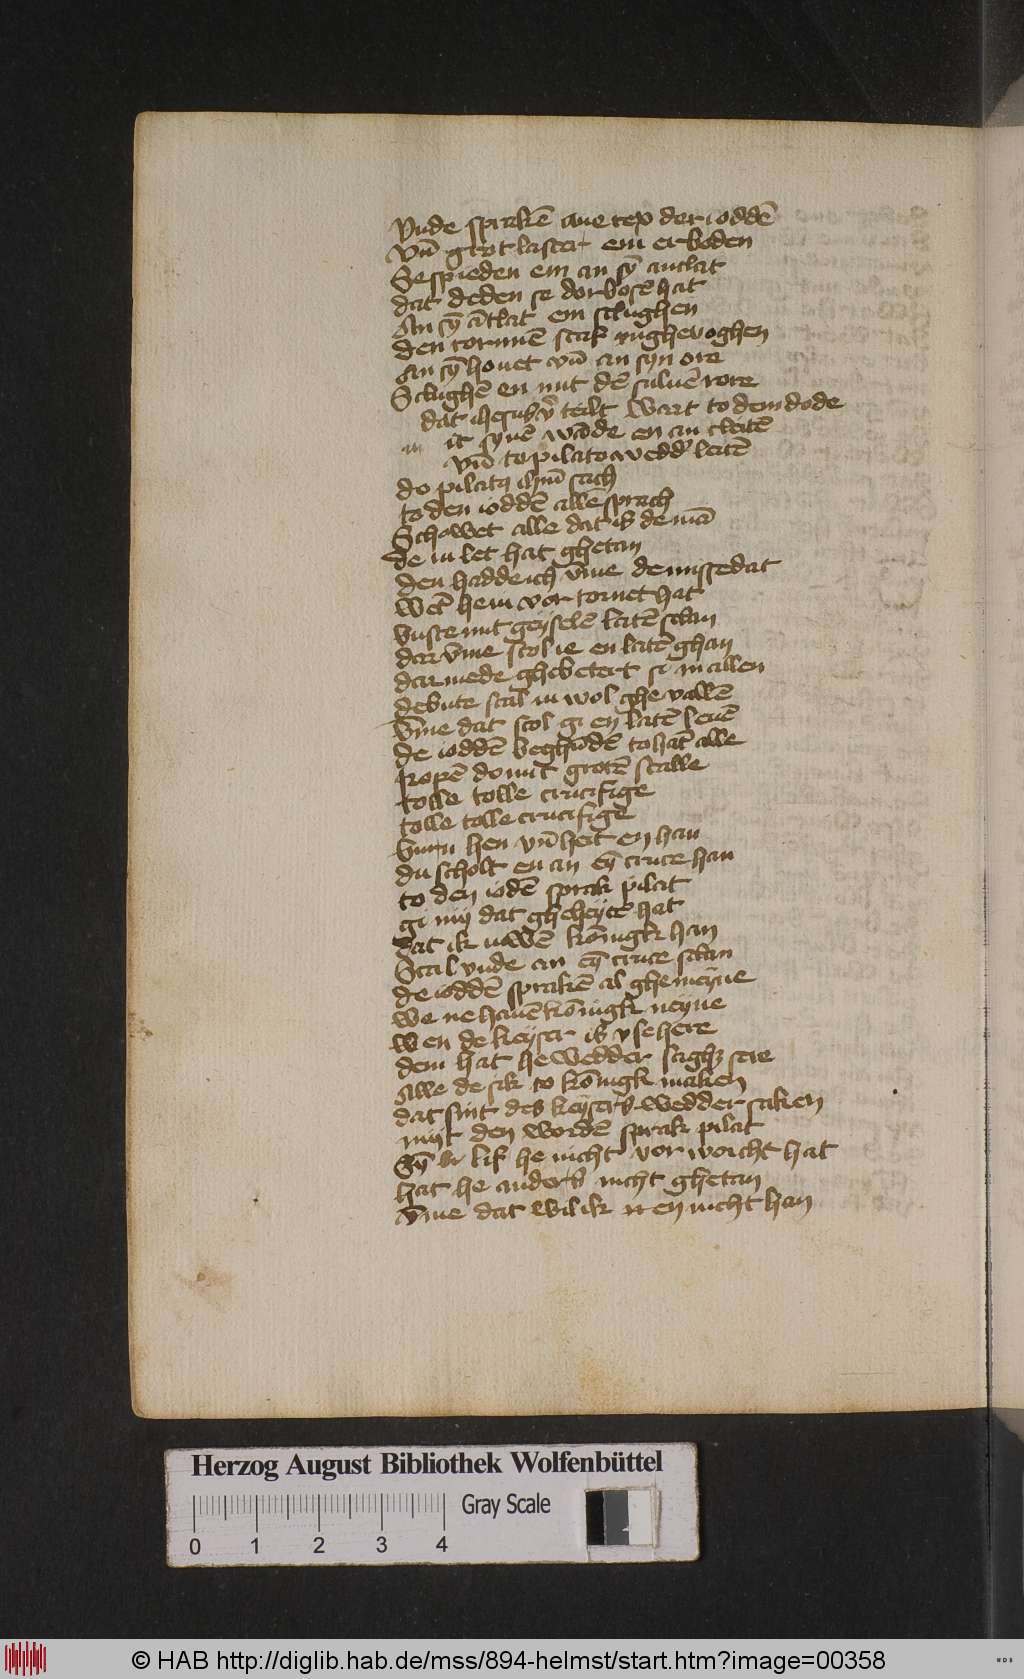 Vnde sprakē aue rex der ioddē
vn̄ grot laster em erboden
Se spieden em an sȳ antlat
dat deden se dor bosē hat
An sȳ ātlat em slughen
den tornnē stak
An sȳ houet vn̄ an syn ore
Slughē en mit dē suluē rore
dat ihesus v̄ teilt wart to dem dode
it synē wāde en an cleitē
vn̄ to pilato wedd' leitē
do pilatꝯ ihm̄ sach
to den ioddē alle sprach
Schowet alle dat is de mā
de iu let hat ghetan
den hadde ich v̄me de missedat
wē hem vor tornet hat
buste mit geyselē latē slan
dar v̄me scol ie en latē ghan
dar mede ghebetert si in allen
de bute scal iu wol ghe vallē
v̄me dat scol gi en latē leuē
de ioddē beghūdē to hāt alle
ropē do mit grotē scalle
tolle tolle crucifige
tolle tolle crucifige
hen vn̄ heit en han
du scholt en an eȳ cruce han
to den iodē sprak pilat
gi mij dat gheheytē hat
dat ik uwē kōnigk han
Scal vnde an eȳ cruce slan
de ioddē sprakē al ghemeyne
we ne hauē kōnigk neyne
wen de keyser is vse here
dem hat he wedder saghꝫ sere
Alle de sik to kōnigk maken
dat sint des keysers wedder saken
mijt den wordē sprak pilat
Sȳ lif he nicht vor worcht hat
hat he anders nicht ghetan
v̄me dat wil ik en nicht han
Herzog August Bibliothek Wolfenbüttel
Gray Scale
0 1 2 3 4
© HAB http://diglib.hab.de/mss/894-helmst/start.htm?image=00358